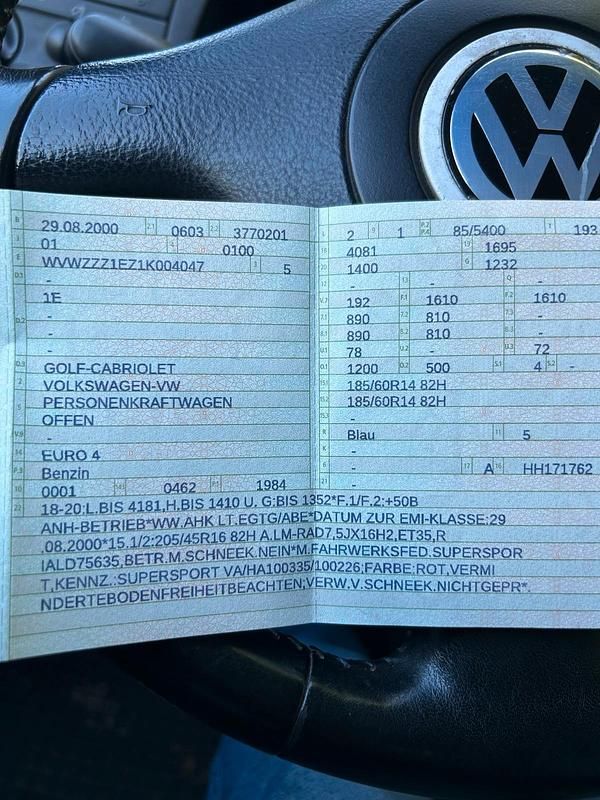 B 29.08.2000 2.1 0603 2.2 3770201
J 01 4 0100
E WVWZZZ1EZ1K004047 3 5
D.1 -
1E
D.2 -
-
-
D.3 GOLF-CABRIOLET
2 VOLKSWAGEN-VW
5 PERSONENKRAFTWAGEN
OFFEN
V.9 -
14 EURO 4
P.3 Benzin
10 0001 14.1 0462 P.1 1984
L 2 9 1 P.2 P.4 85/5400 T 193
18 4081 19 1695
20 1400 G 1232
12 - 13 - Q -
V.7 192 F.1 1610 F.2 1610
7.1 890 7.2 810 7.3 -
8.1 890 8.2 810 8.3 -
U.1 78 U.2 - U.3 72
O.1 1200 O.2 500 S.1 4 S.2 -
15.1 185/60R14 82H
15.2 185/60R14 82H
15.3 -
R Blau 11 5
K -
6 - 17 A 16 HH171762
21 -
22 18-20:L.BIS 4181,H.BIS 1410 U. G:BIS 1352*F.1/F.2:+50B
ANH-BETRIEB*WW.AHK LT.EGTG/ABE*DATUM ZUR EMI-KLASSE:29
.08.2000*15.1/2:205/45R16 82H A.LM-RAD7,5JX16H2,ET35,R
IALD75635,BETR.M.SCHNEEK.NEIN*M.FAHRWERKSFED.SUPERSPOR
T,KENNZ.:SUPERSPORT VA/HA100335/100226;FARBE:ROT,VERMI
NDERTEBODENFREIHEITBEACHTEN;VERW.V.SCHNEEK.NICHTGEPR*.